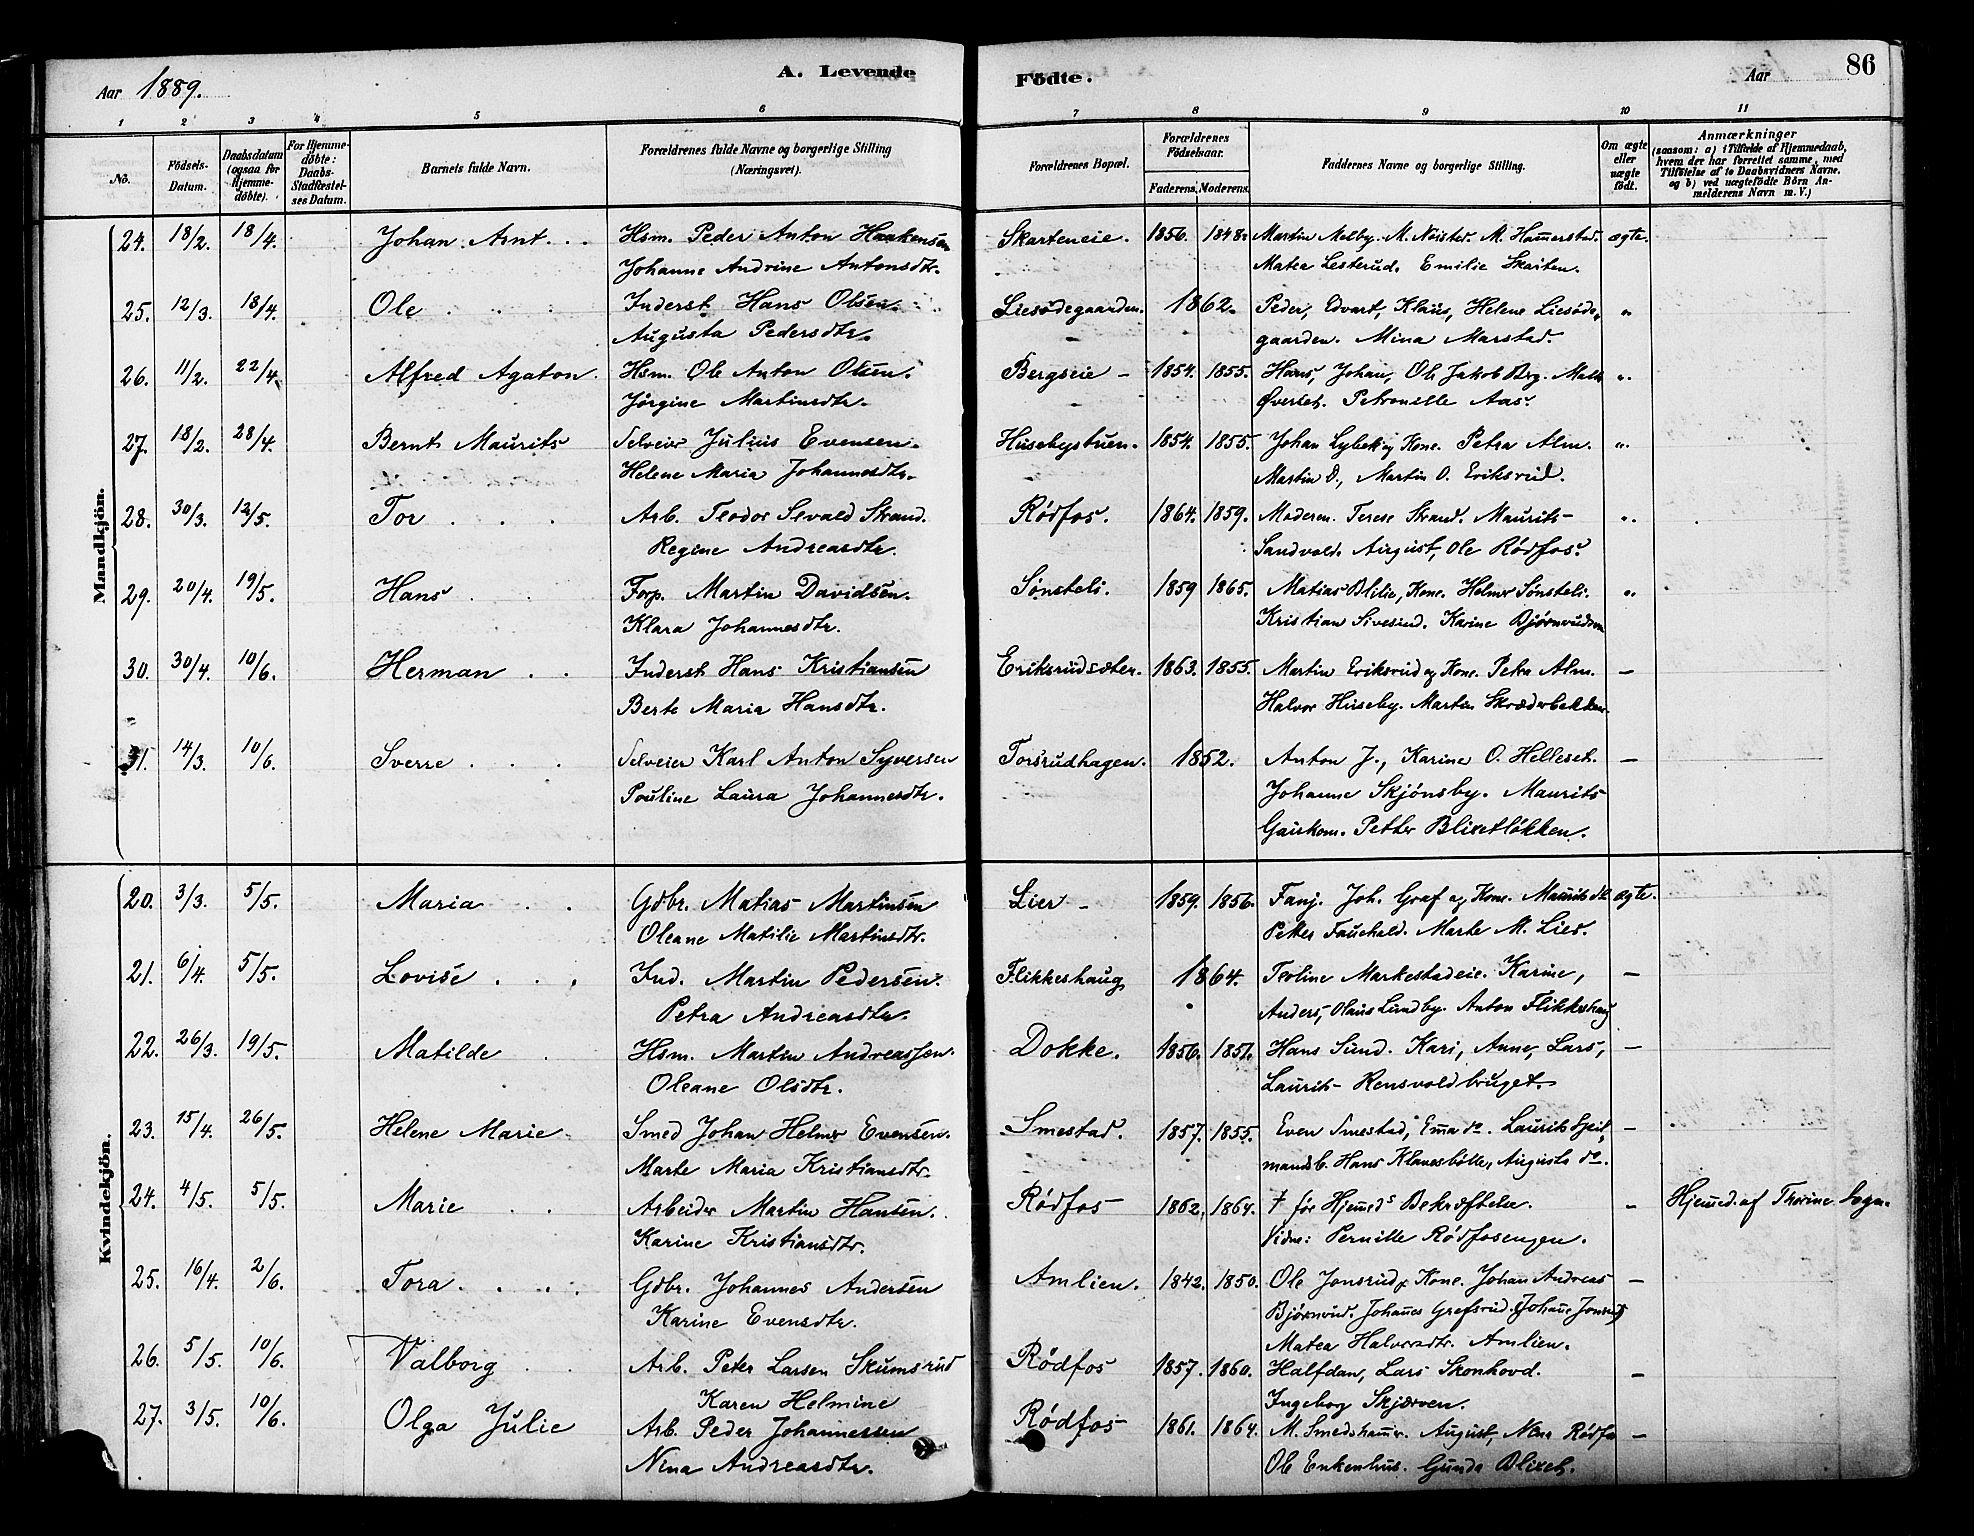 Aar 1889. A. Levende Födte. Aar 86
1 2 3 4 5 6 7 8 9 10 11
No. Födsels-Datum. Daabsdatum (ogsaa for Hjemme-döbte). For Hjemme-döbte: Daabs-Stadfæstel-ses Datum. Barnets fulde Navn. Forældrenes fulde Navne og borgerlige Stilling (Næringsvei). Forældrenes Bopæl. Forældrenes Födselsaar. Faderens. Moderens. Faddernes Navne og borgerlige Stilling. Om ægte eller uægte födt. Anmærkninger (saasom: a) i Tilfælde af Hjemmedaab, hvem der har forrettet samme, med Tilföielse af to Daabsvidners Navne, og b) ved uægtefödte Börn An-melderens Navn m. V.)
Mandkjön.
24. 18/2. 18/4. Johan Arnt. Hsm. Peder Anton Haakensen Skarteneie. 1856. 1848. Martin Melby. M. Neisted. M. Hamerstad. ægte.
Johanne Andrine Antonsdtr. Matea Lesterud. Emilie Skarten.
25. 12/3. 18/4. Ole Inderst Hans Olsen. Liesødegaarden. 1862. Peder, Edvart, Klaus, Helene Liesøde- "
Augusta Pedersdtr. gaarden. Mina Marstad.
26. 11/2. 22/4. Alfred Agaton. Hsm. Ole Anton Olsen. Bergseie 1854. 1855. Hans, Johan, Ole Jakob Brg. "
Jørgine Martinsdtr. Øverset. Petronelle Aas.
27. 18/2. 28/4. Bernt Maurits Selveier Julius Evensen. Husebystuen. 1854. 1855. Johan Lybek og Kone. Petra Alm. "
Helene Maria Johannesdtr. Martin D., Martin O. Eriksrud.
28. 30/3. 12/5. Tor Arb. Teodor Sevald Strand. Rødfos. 1864. 1859. Moderen. Terese Strand. Maurits "
Regine Andreasdtr. Sandvold. August, Ole Rødfos.
29. 20/4. 19/5. Hans Forp. Martin Davidsen. Sønsteli. 1859 1865. Matias Blilie, Kone. Helmer Sønsteli. "
Klara Johannesdtr. Kristian Sivesind. Karine Bjørnrudsen
30. 30/4. 10/6. Herman Inderst Hans Kristiansen Eriksrudsæter. 1863. 1855. Martin Eriksrud og Kone. Petra Alm. —
Berte Maria Hansdtr. Halvor Huseby. Martin Skræderbakken.
31. 14/3. 10/6. Sverre Selveier Karl Anton Syversen Torsrudhagen. 1852. Anton J., Karine O. Helleset. —
Pouline Laura Johannesdtr. Johanne Skjønsby. Maurits
Petter Blixetløkken.
Kvindekjön.
20. 3/3. 5/5. Maria Gdbr. Matias Martinsen Lier 1859. 1856. Fanj. Joh. Graf og Kone. Maurits do ægte.
Oleane Matilie Martinsdtr. Petter Fauchald. Marte M. Lier.
21. 6/4. 5/5. Lovise Ind. Martin Pedersen. Flikkeshaug 1864. Teoline Markestadeie. Karine, —
Petra Andreasdtr. Anders, Olaus Lundby. Anton Flikkeshaug
22. 26/3. 19/5. Matilde Hsm. Martin Andreassen. Dokke. 1856. 1851. Hans Sund. Kari, Anne, Lars, —
Oleane Olsdtr. Laurits Rensvoldbruget.
23. 15/4. 26/5. Helene Marie Smed Johan Helmer Evensen. Smestad. 1857. 1855. Even Smestad, Ema do. Laurits Spil- —
Marte Maria Kristiansdtr. mandsb. Hans Klævesbølle, Augusta do.
24. 4/5. 5/5. Marie Arbeider Martin Hansen. Rødfos 1862. 1864. † før Hjemeds Bekræftelse. — Hjemed. af Thorine
Karine Kristiansdtr. Vidne: Pernille Rødfosengen.
25. 16/4. 2/6. Tora Gdbr. Johannes Andersen Amlien. 1842. 1850. Ole Jonsrud og Kone. Johan Andreas —
Karine Evensdtr. Bjørnrud. Johanes Grefsrud. Johane Jonsrud
Matea Halvorsdtr. Amlien.
26. 5/5. 10/6. Valborg Arb. Peter Larsen Skumsrud Rødfos 1857. 1860. Halfdan, Lars Skonhovd. —
Karen Helmine Ingeborg Skjærven.
27. 3/5. 10/6. Olga Julie Arb. Peder Johannessen Rødfos 1861. 1864. M. Smedshamr. August, Nena Rødfo —
Nena Andreasdtr. Ole Enkenhus. Gunda Blixet.